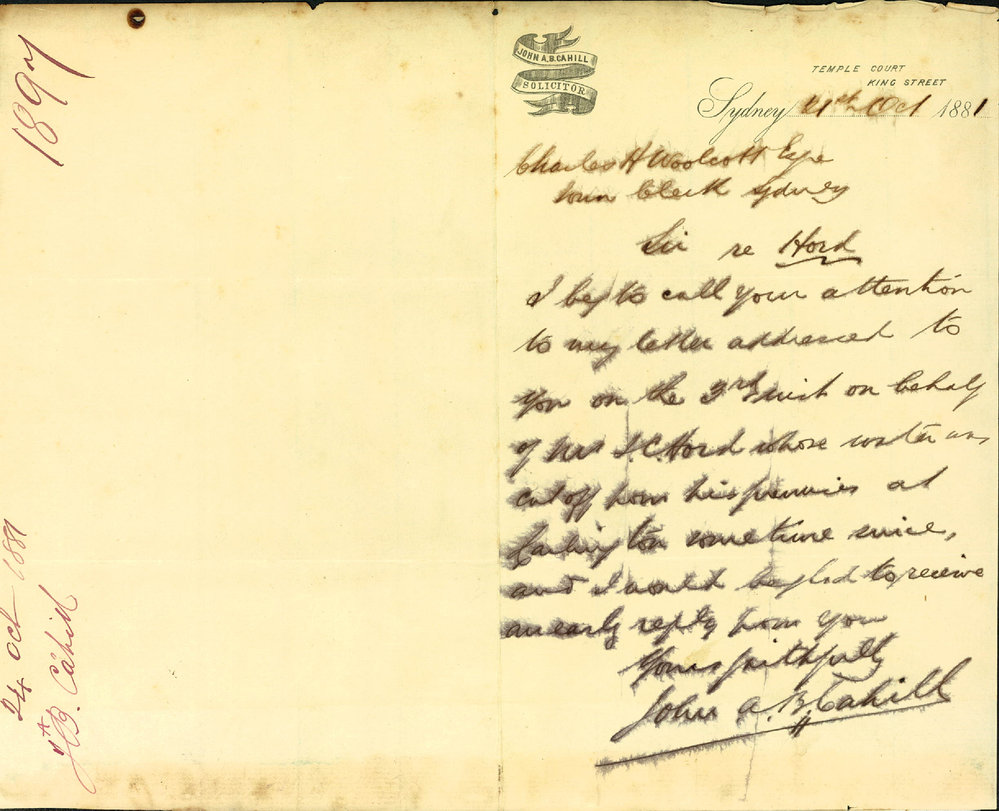 1897
24 Oct 1881
J A B. Cahill
JOHN A.B. CAHILL
SOLICITOR
TEMPLE COURT
KING STREET
Sydney Oct 1881
Charles H Woolcott Esqre
Town Clerk Sydney
Sir re Hord
I beg to call your attention
to my letter addressed to
you on the 3rd inst on behalf
of Mr J.C. Hord whose water was
cut off from his premises at
Darlington sometime since,
and I would be glad to receive
an early reply from you
Yours faithfully
John A. B. Cahill